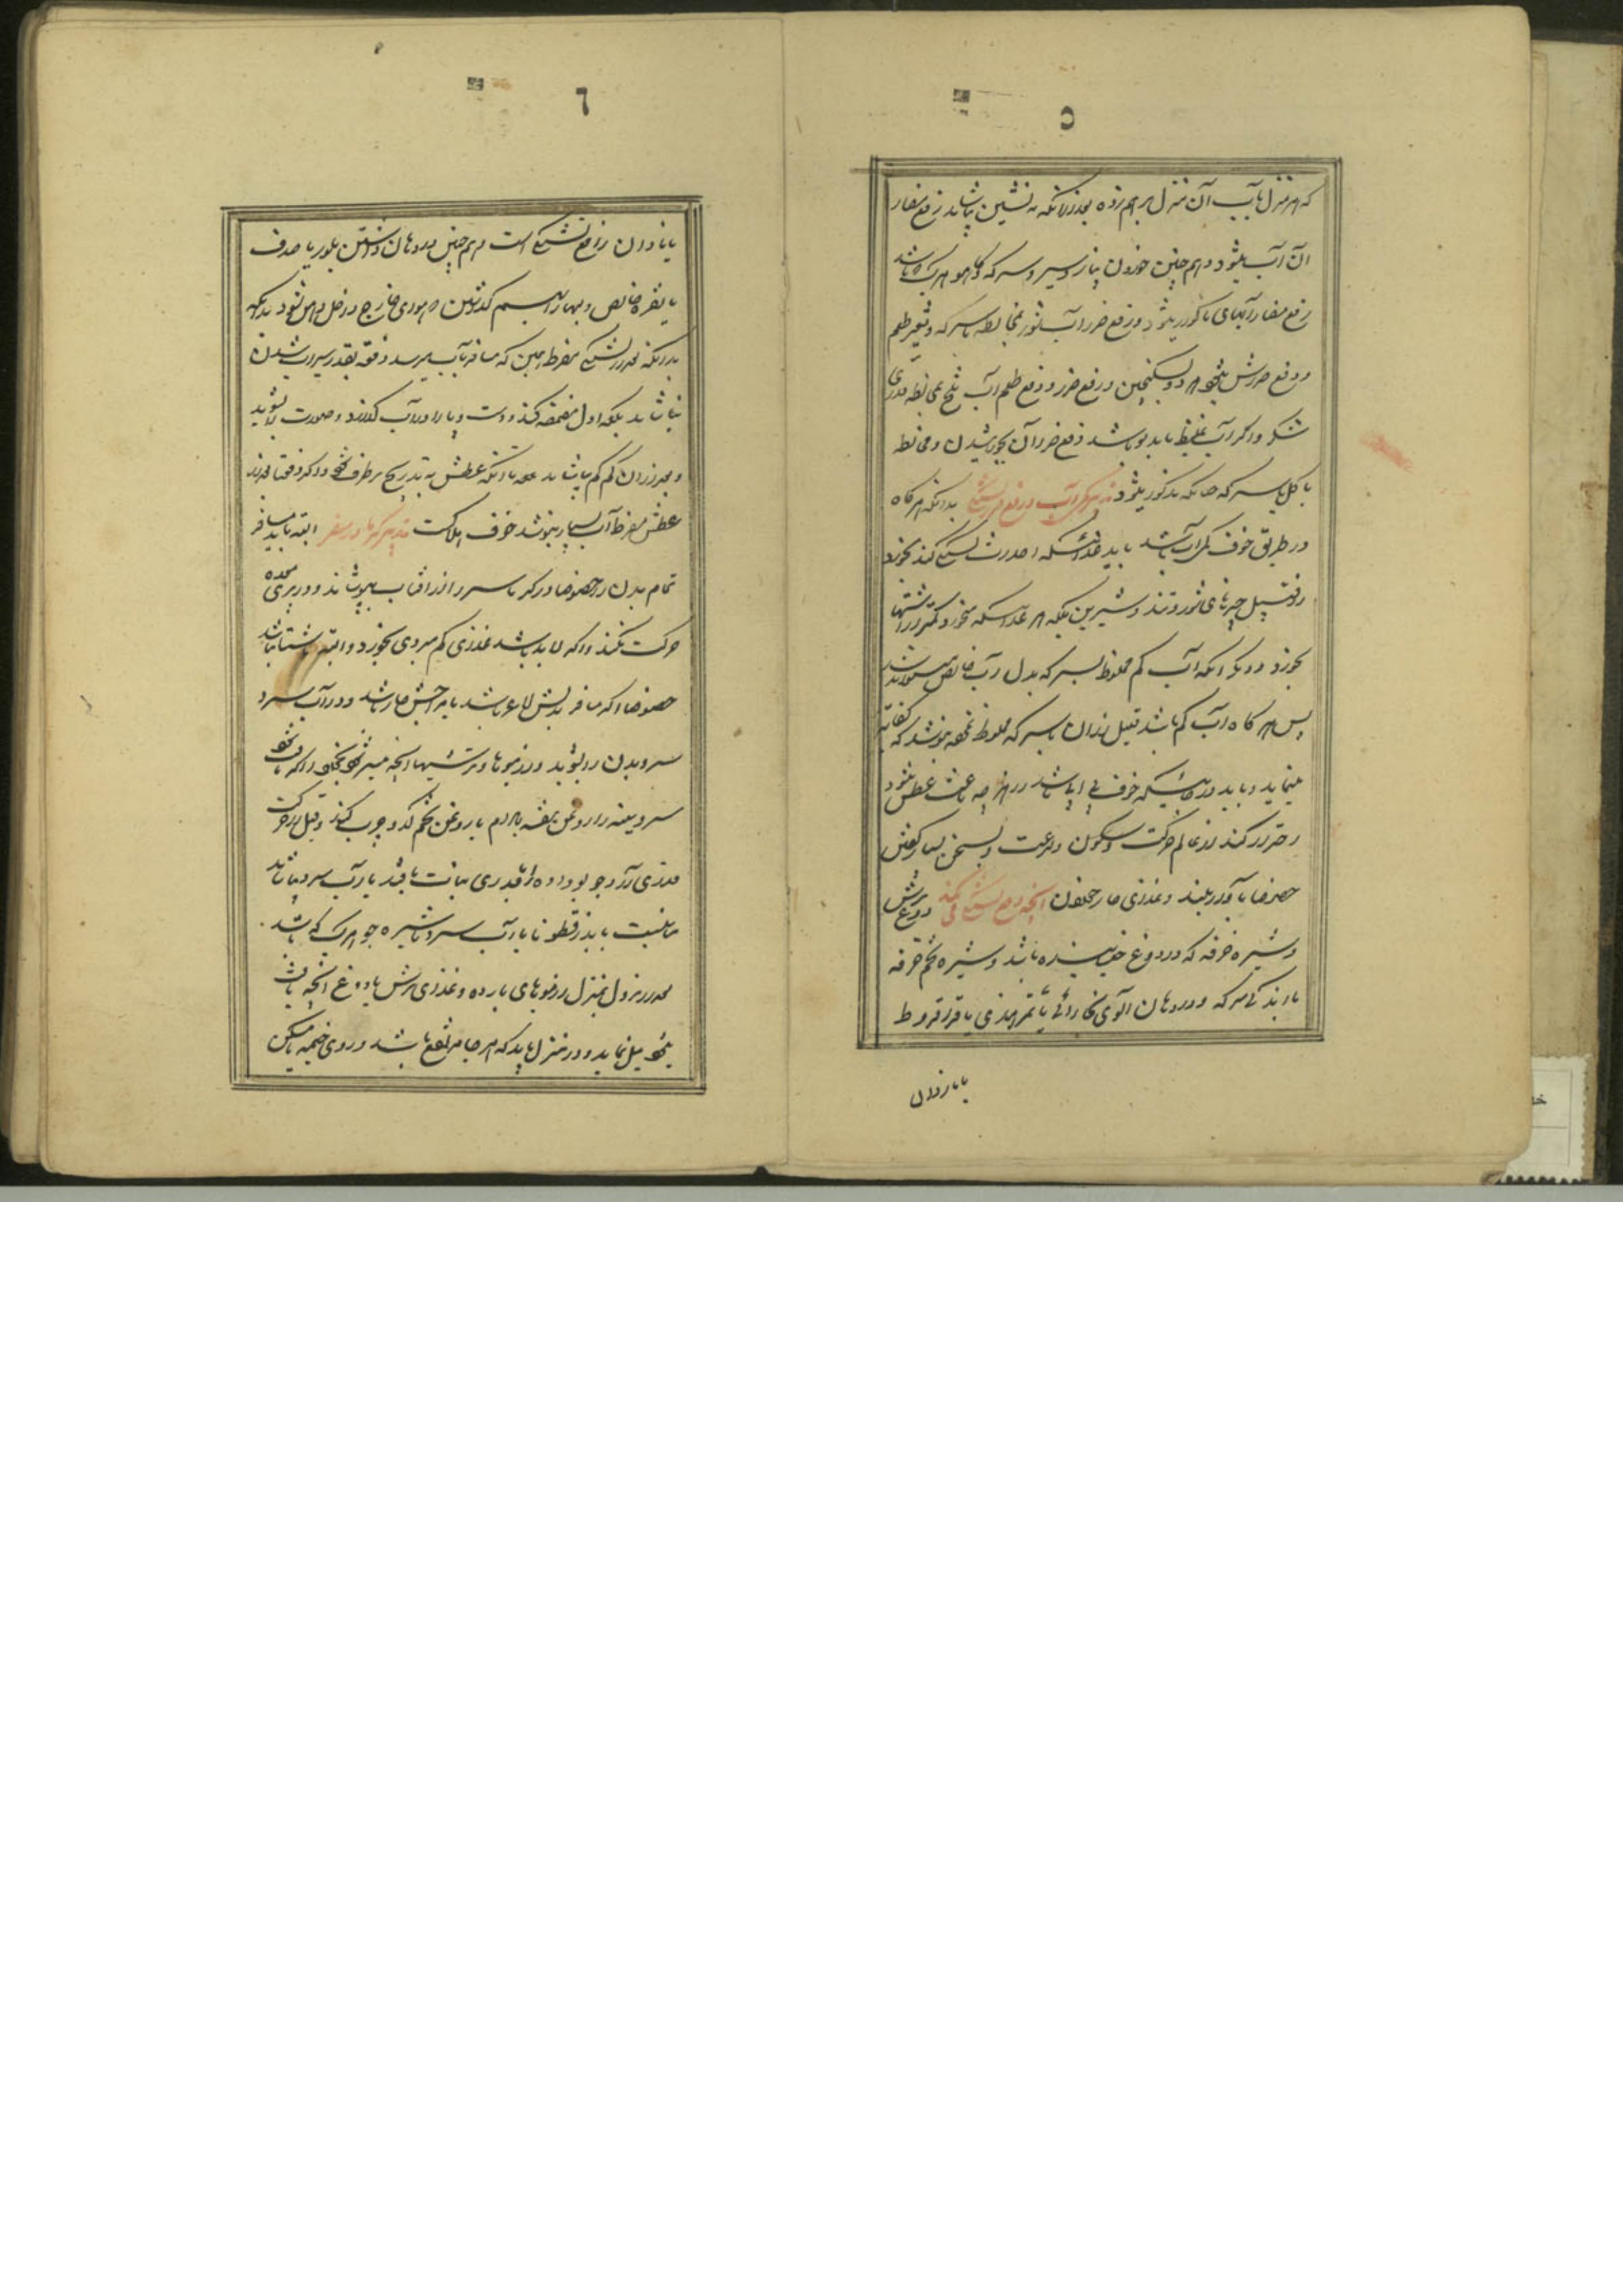 ۵
که هر منزل با آب آن منزل بر هم زده بعد از آنکه ته نشین بیاشامد رفع مضار
آن آب میشود و هم چنین خوردن پیاز و سیر و سرکه و کاهو هر یک باشد
رفع مضار آبهای مذکور میشود و رفع ضرر آب شور بمخالطه با سرکه و تغییر طعم
و دفع ضررش و سکنجبین و رفع ضرر و دفع طعم آب تلخ بمخالطه قدری
شکر و اگر آب غلیظ یا بدبو باشد دفع ضرر آن بجوشیدن و مخالطه
با گل یا سرکه چنانکه مذکور میشود تدبیر کمی آب و رفع تشنگی بدانکه هر گاه
در طریق خوف کمی آب باشد باید غذائیکه احداث تشنگی کند نخورد
از قبیل چیزهای شور و تند و شیرین بلکه هر غذائیکه میخورد کمتر از اشتها
بخورد و دیگر آنکه آب کم مخلوط بسرکه بدل آب خالص
پس هر گاه آب کم باشد قبل از آن با سرکه مخلوط نموده بنوشد که کفایت
مینماید و باید در جائیکه خوف بی آبی باشد از هر چه باعث عطش میشود
احتراز کند از عالم حرکت و سکون و سرعت و سخن بسیار گفتن
خصوصا با آواز بلند و غذای حار خوردن آنچه دفع تشنگی میکند دوغ ترش
و شیره خرفه که در دوغ خیسیده باشد و شیره تخم خرفه
با اندکی سرکه و در دهان آلوی بخارائی یا تمر هندی یا قراقروط
یا نار دان
٦
یا نار دان رافع تشنگی است و هم چنین در دهان داشتن بلور یا صدف
یا نقره خالص و بهم گذاشتن که هوای خارج داخل دهن نشود بدانکه
بدانکه بعد از تشنگی مفرط همین که مسافر بآب برسد دفعة بقدر سیراب شدن
نیاشامد بلکه اول مضمضه کند و دست و پا را در آب گذارد و صورت را بشوید
و بعد از آن کم کم بیاشامد تا آنکه عطش به تدریج برطرف شود و اگر دفعتا بعد از
عطش مفرط آب بسیار بنوشد خوف هلاکت تدبیر گرما در سفر البته باید مسافر
تمام بدن را خصوصا در گرما سر را از آفتاب بپوشاند و در پری معده
حرکت نکند و اگر لابد باشد غذای کم مبردی بخورد و البته ناشتا نباشد
خصوصا اگر مسافر بدنش لاغر باشد یا مزاجش حار باشد و در آب سرد
سر و بدن را بشوید و از میوها و ترشیها آنچه میسر شود بخورد و اگر
سر و سینه را روغن بنفشه بادام یا روغن تخم کدو چرب کند و قبل از حرکت
قدری آرد جو بو داده با قدری نبات با قند با آب سرد بیاشامد
مناسبست یا بذرقطونا با آب سرد یا شیره جو هر یک که باشد
بعد از نزول بمنزل از میوهای بارده و غذای ترش یا دوغ آنچه باشد
میل نماید و در منزل باید که هر جا مرتفع باشد و روی خیمه یا مسکن